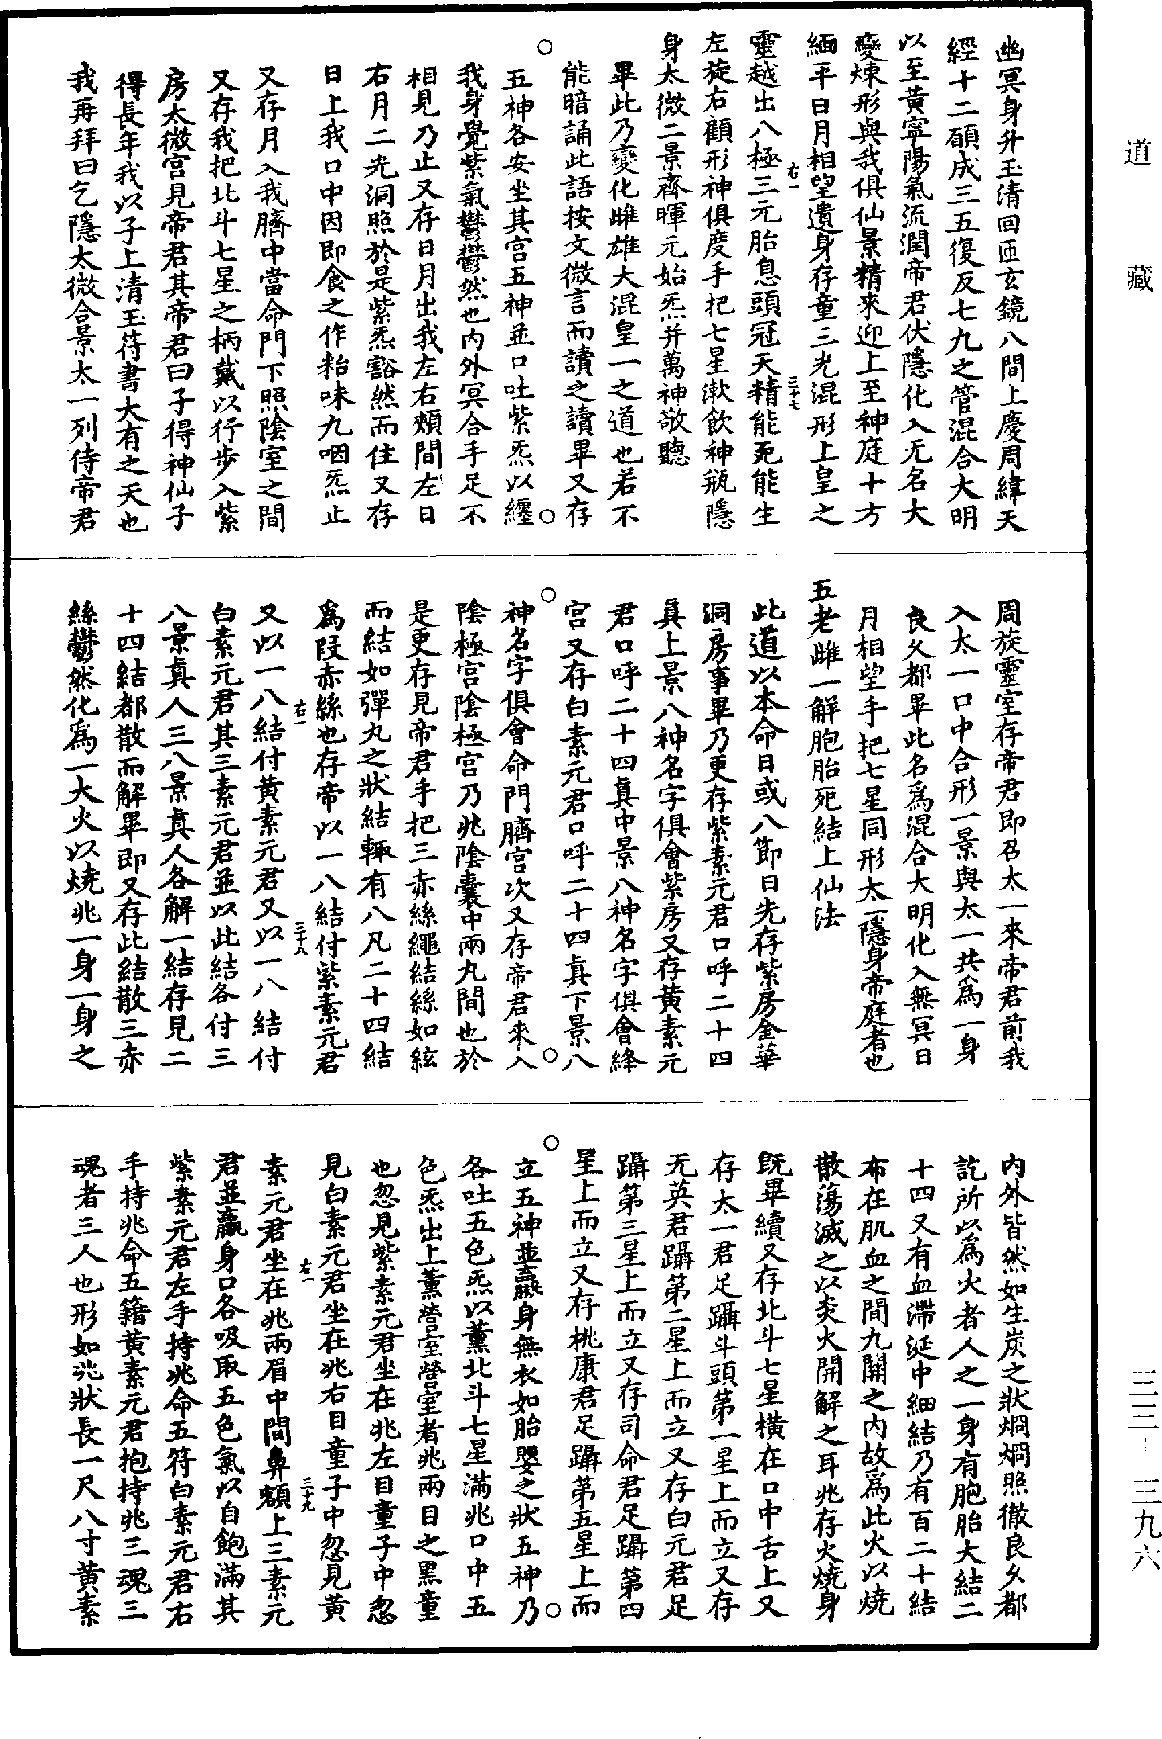 道藏
三三－三九六
幽冥身升玉清回匝玄鏡八間上慶周緯天
經十二願成三五復反七九之管混合大明
以至黃寧陽氣流潤帝君伏隱化入无名大
變煉形與我俱仙景精來迎上至神庭十方
緬平日月相望遺身存童三光混形上皇之
右一
三十七
靈越出八極三元胎息頭冠天精能死能生
左旋右顧形神俱度手把七星漱飲神瓶隱
身太微二景齊暉元始炁并萬神敬聽
畢此乃變化雌雄大混皇一之道也若不
能暗誦此語按文微言而讀之讀畢又存
五神各安坐其宮五神並口吐紫炁以纏
我身覺紫氣鬱鬱然也內外冥合手足不
相見乃止又存日月出我左右頰間左日
右月二光洞照於是紫炁豁然而住又存
日上我口中因即食之作粭味九咽炁止
又存月入我臍中當命門下照陰室之間
又存我把北斗七星之柄戴以行步入紫
房太微宮見帝君其帝君曰子得神仙子
得長年我以子上清玉苻書大有之天也
我再拜曰乞隱太微合景太一列侍帝君
周旋靈室存帝君即召太一來帝君前我
入太一口中合形一景與太一共為一身
良久都畢此名為混合大明化入無冥日
月相望手把七星同形太一隱身帝庭者也
五老雌一解胞胎死結上仙法
此道以本命日或八節日先存紫房金華
洞房事畢乃更存紫素元君口呼二十四
真上景八神名字俱會紫房又存黃素元
君口呼二十四真中景八神名字俱會絳
宮又存白素元君口呼二十四真下景八
神名字俱會命門臍宮次又存帝君來入
陰極宮陰極宮乃兆陰囊中兩丸間也於
是更存見帝君手把三赤絲繩結絲如絃
而結如彈丸之狀結輙有八凡二十四結
為叚赤絲也存帝以一八結付紫素元君
右一
三十八
又以一八結付黃素元君又以一八結付
白素元君其三素元君並以此結各付三
八景真人三八景真人各解一結存見二
十四結都散而解畢即又存此結散三赤
絲鬱然化為一大火以燒兆一身一身之
內外皆然如生炭之狀烱烱照徹良久都
訖所以為火者人之一身有胞胎大結二
十四又有血滯涎中細結乃有百二十結
布在肌血之間九關之內故為此火以燒
散蕩滅之以炎火開解之耳兆存火燒身
既畢續又存北斗七星橫在口中舌上又
存太一君足躡斗頭第一星上而立又存
无英君躡第二星上而立又存白元君足
躡第三星上而立又存司命君足躡第四
星上而立又存桃康君足躡第五星上而
立五神並臝身無衣如胎嬰之狀五神乃
各吐五色炁以薰北斗七星滿兆口中五
色炁出上薰營室營室者兆兩目之黑童
也忽見紫素元君坐在兆左目童子中忽
見白素元君坐在兆右目童子中忽見黃
右一
三十九
素元君坐在兆兩眉中間鼻頞上三素元
君並臝身口各吸取五色氣以自飽滿其
紫素元君左手持兆命五符白素元君右
手持兆命五籍黃素元君抱持兆三魂三
魂者三人也形如兆狀長一尺八寸黃素